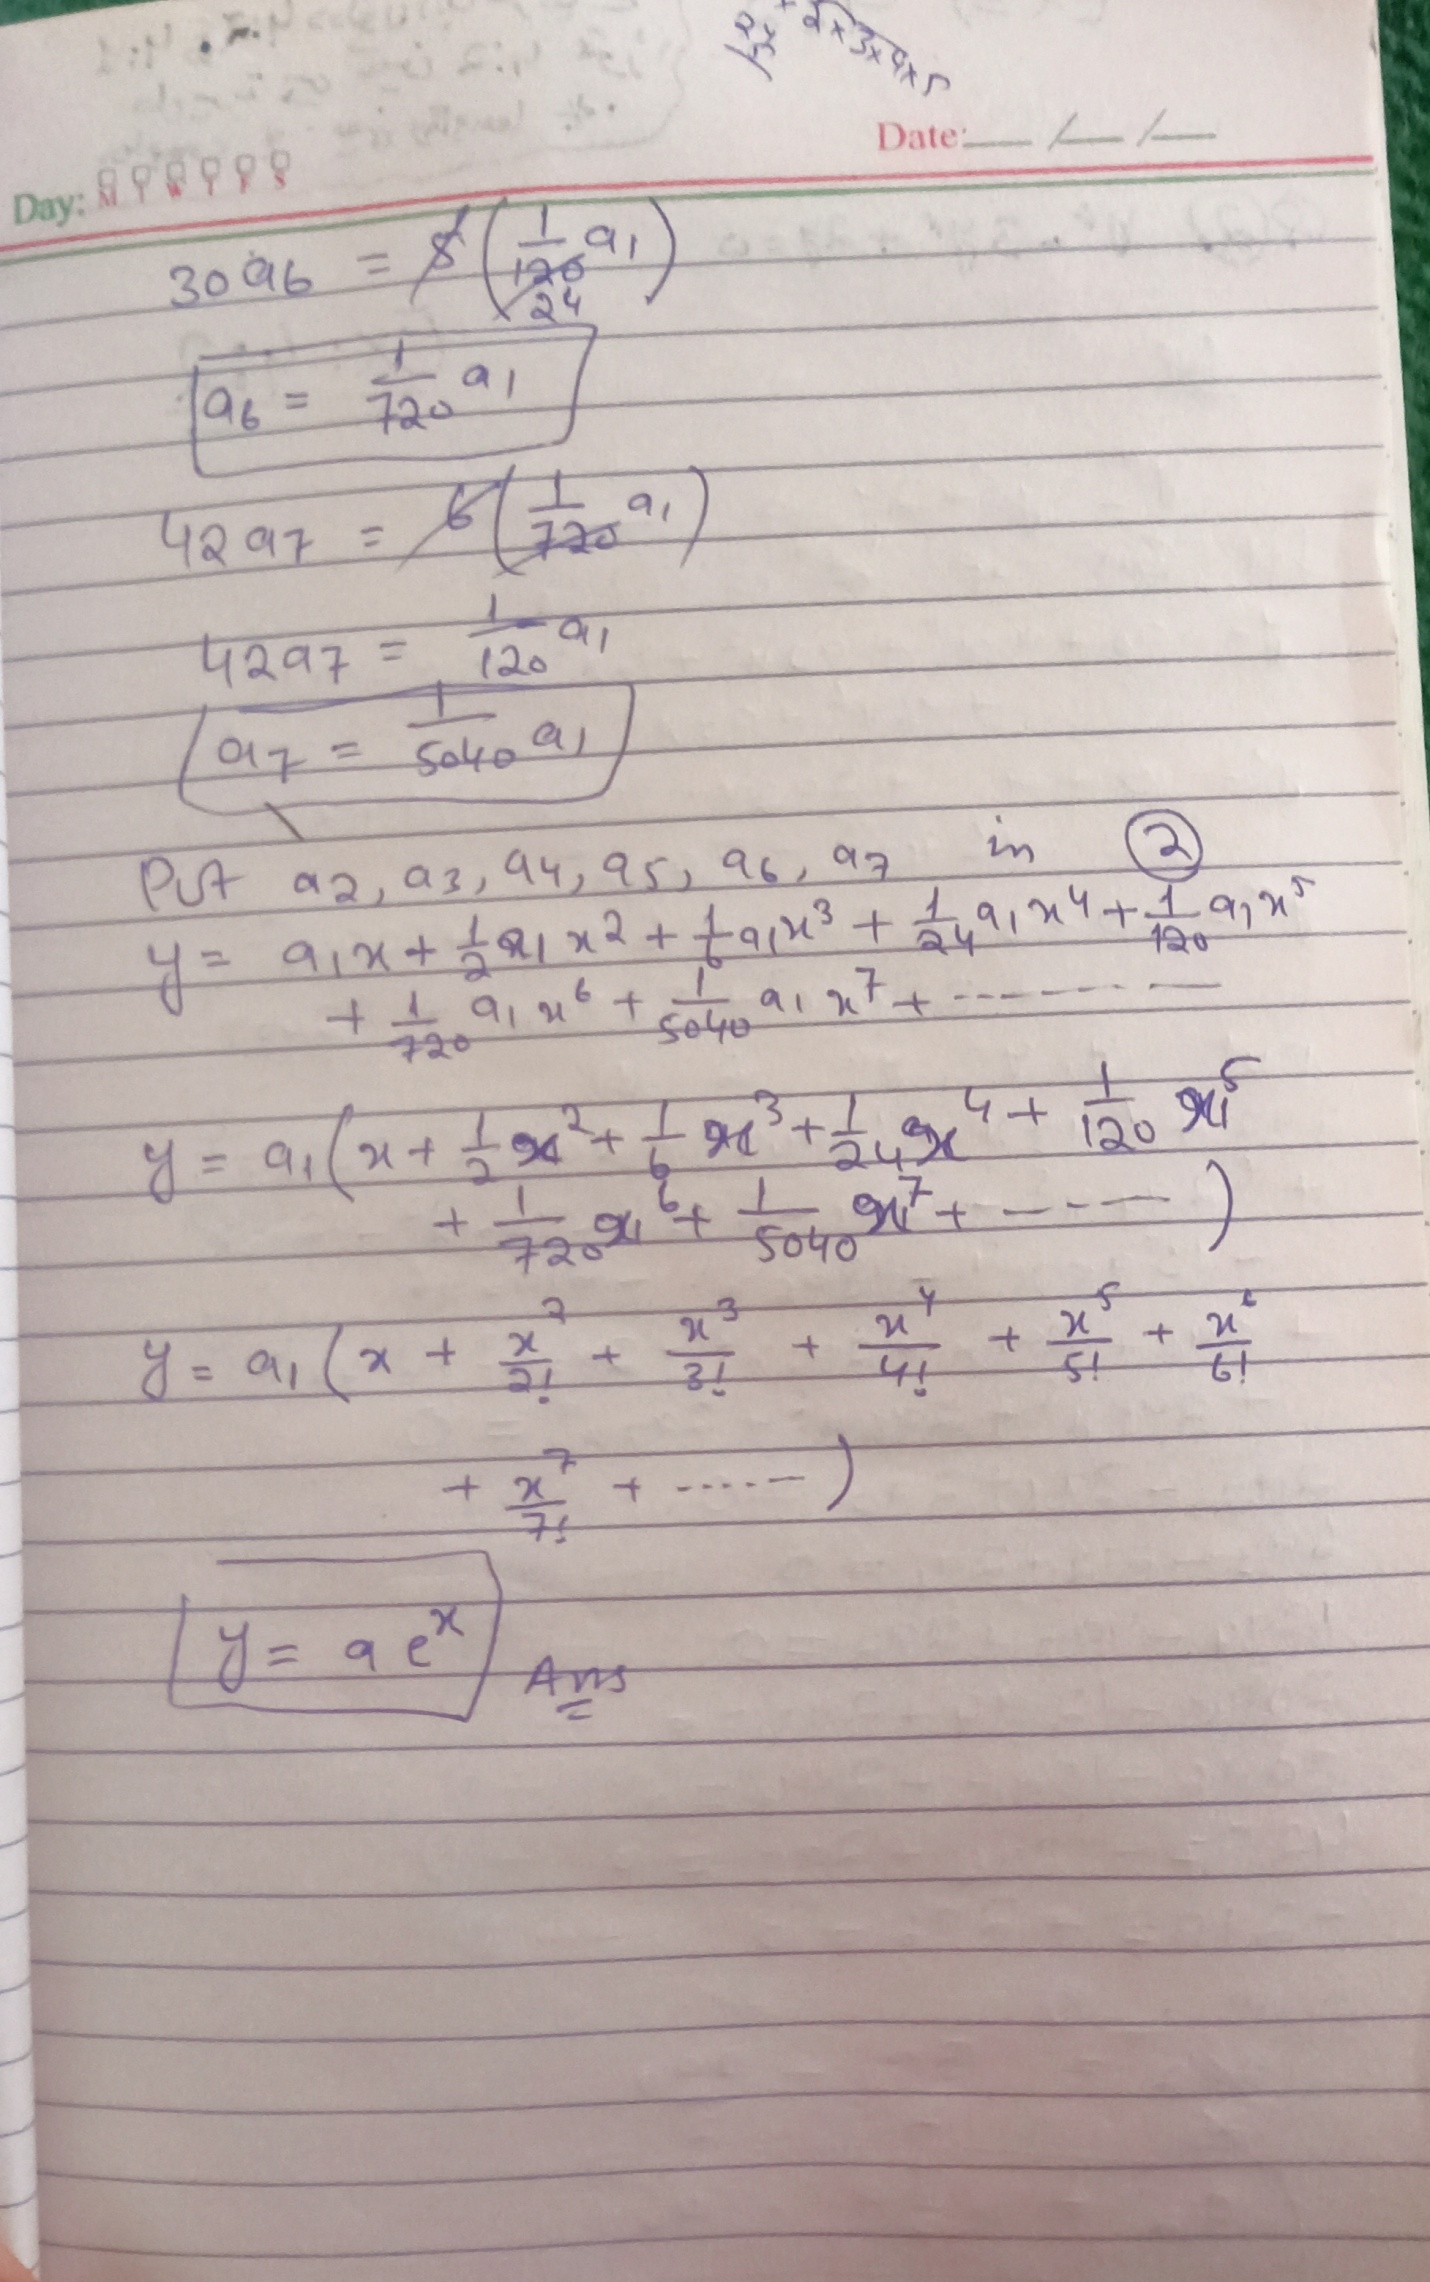 2 x 3 x 4 x 5
Date: __ / __ / __
Day: M T W T F S
30a6 = 5 (1/120 a1) 24
a6 = 1/720 a1
42a7 = 6 (1/720 a1)
42a7 = 1/120 a1
a7 = 1/5040 a1
Put a2, a3, a4, a5, a6, a7 in ②
y = a1x + 1/2 a1x² + 1/6 a1x³ + 1/24 a1x⁴ + 1/120 a1x⁵
+ 1/720 a1x⁶ + 1/5040 a1x⁷ + --------
y = a1(x + 1/2 x² + 1/6 x³ + 1/24 x⁴ + 1/120 x⁵
+ 1/720 x⁶ + 1/5040 x⁷ + ----- )
y = a1(x + x²/2! + x³/3! + x⁴/4! + x⁵/5! + x⁶/6!
+ x⁷/7! + ...... )
y = a eˣ Ans